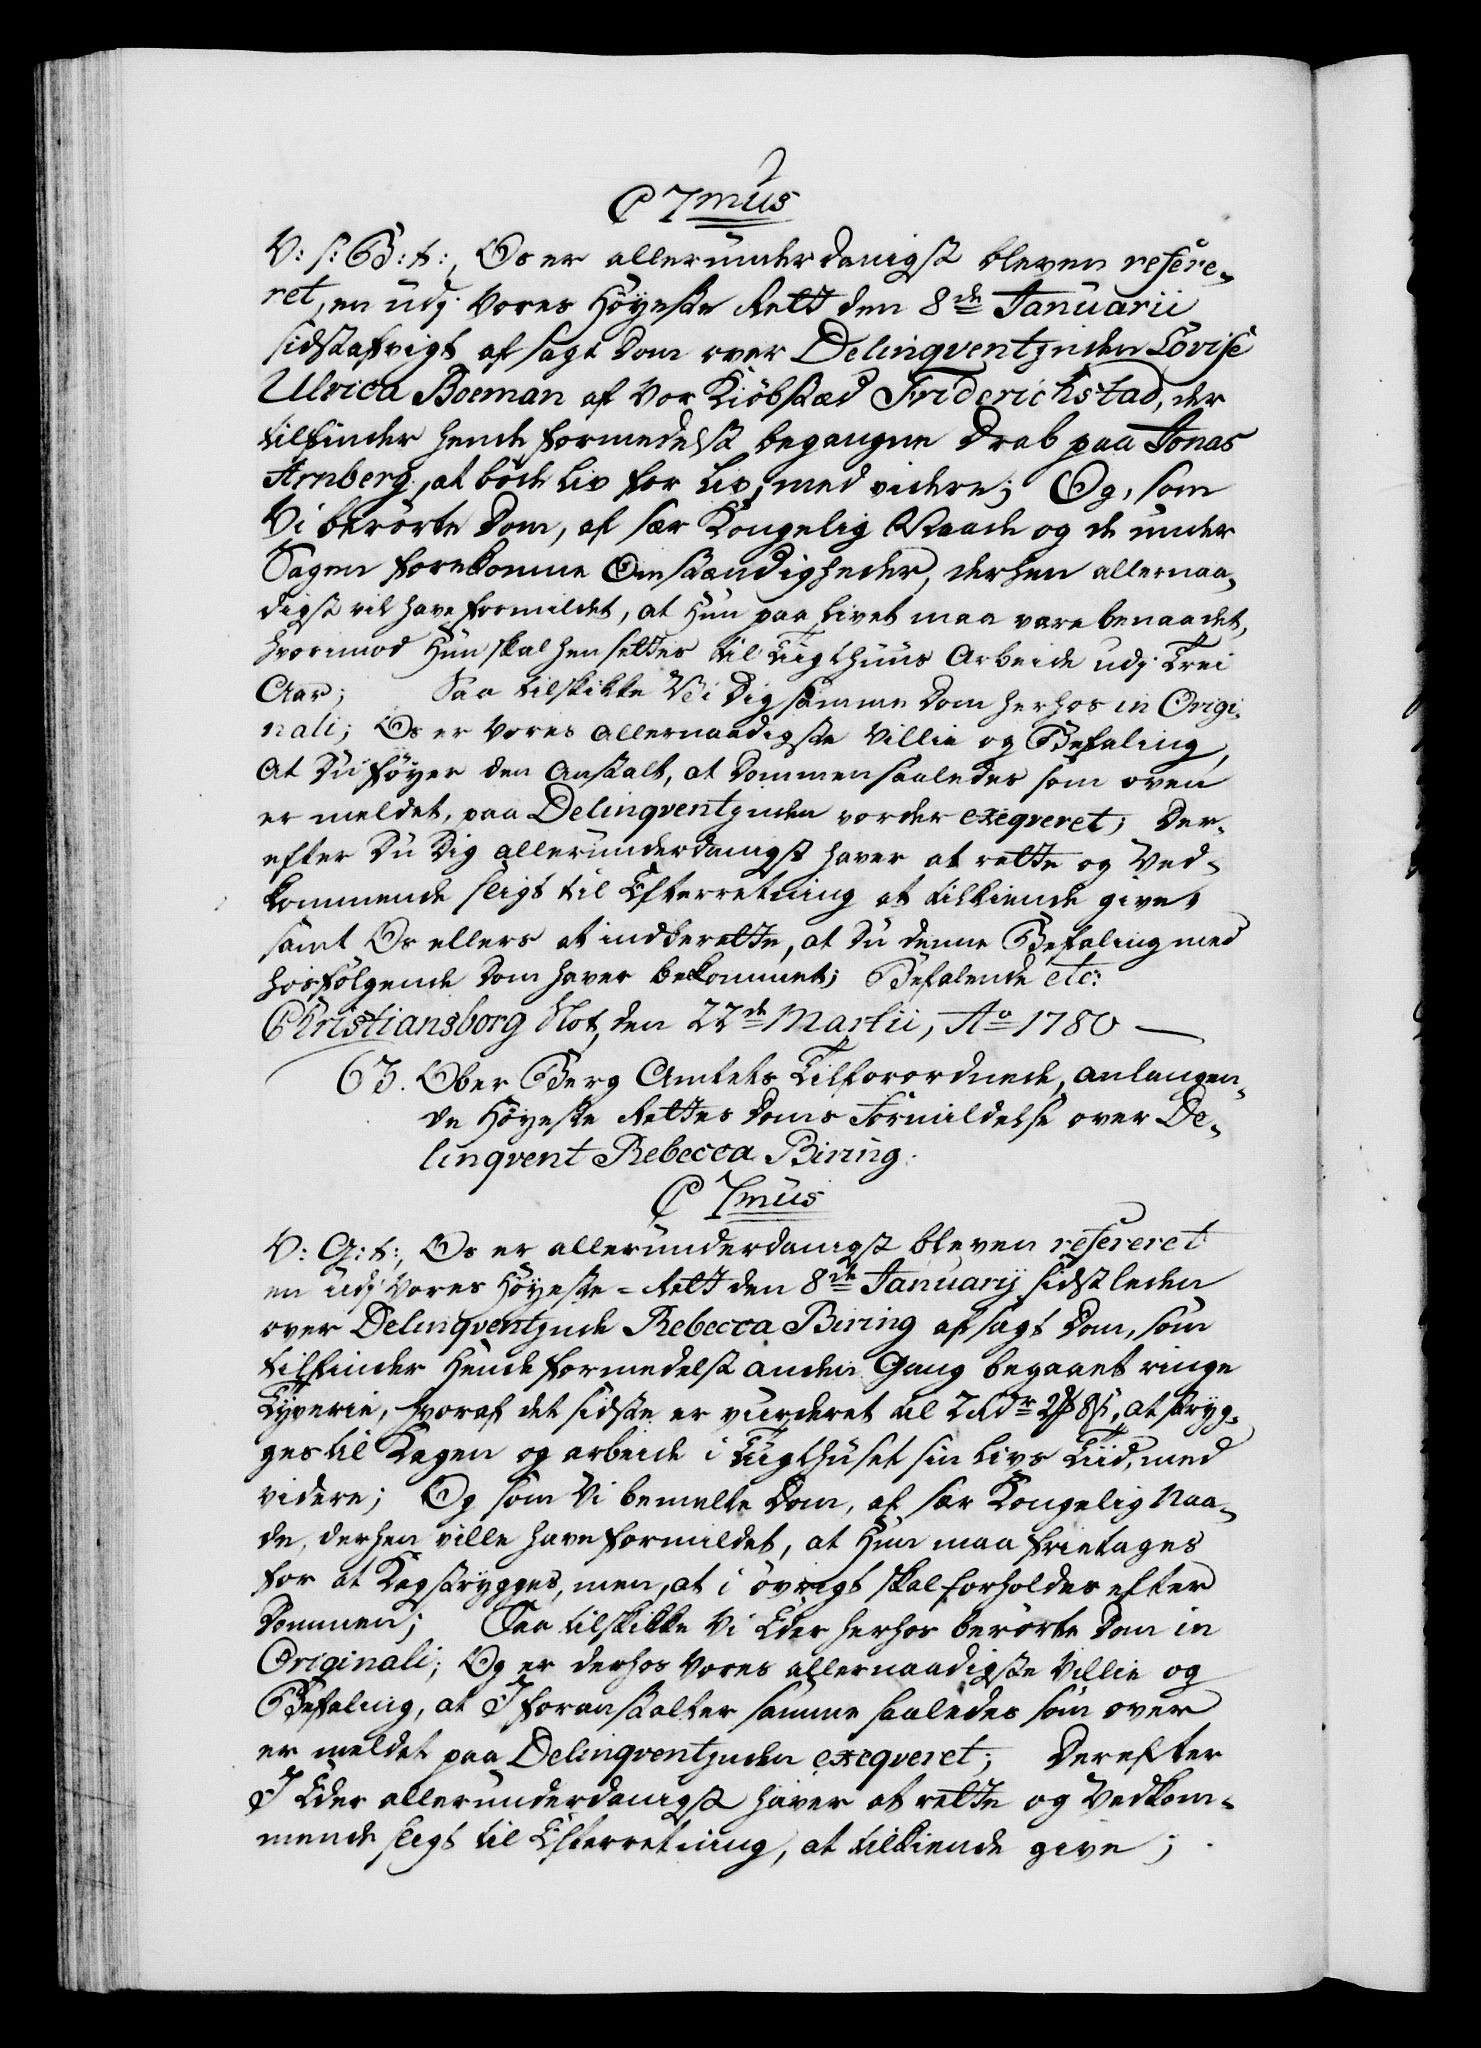 C 7mus
V: s: G: t:, Os er allerunderdanigst bleven refere-
ret, en udj Vores Höyeste Rett den 8de Januarii
sidstafvigt afsagt Dom over Delinqventinden Lovise
Ulrica Boeman af Vor Kiöbstæd Friderichstad, der
tilfinder hende formedelst begangne Drab paa Jonas
Arnberg, at böde Liv for Liv, med videre; Og, som
Vi berörte Dom, af sær Kongelig Naade og de under
Sagen forekomne Omstændigheder, derhen allernaa-
digst vil have formildet, at Hun paa Livet maa være benaadet,
hvorimod Hun skal hensettes til Tugthuus Arbeide udj Trei
Aar; Saa tilskikke Vi Dig samme Dom herhos in Origi-
nali; Og er Vores allernaadigste Villie og Befaling,
At Du föyer den Anstalt, at Dommen saaledes som oven
er meldet, paa Delinqventinden vorder exeqveret; Der-
efter Du Dig allerunderdanigst haver at rette og Ved-
kommende sligt til Efterretning at tilkiende give,
samt Os ellers at indberette, at Du denne Befaling med
hosfölgende Dom haver bekommet; Befalende etc:
Christiansborg Slot, den 22de Martii, Ao 1780 —
63. Ober Berg Amtets Tilforordnede, anlangen-
de Höyeste Rettes Doms Formildelse over De-
linqvent Rebecca Biring.
C 7mus
V: G: t:, Os er allerunderdanigst bleven refereret
en udj Vores Höyeste-Rett den 8de Januarij sidstleden
over Delinqventinde Rebecca Biring afsagt Dom, som
tilfinder Hende formedelst anden Gang begaaet ringe
Tyverie, hvoraf det sidste er vurderet til 2 Rdr 2 # 8 s, at stryg-
ges til Kagen og arbeide i Tugthuset sin Livs Tiid, med
videre; Og som Vi bemelte Dom, af sær Kongelig Naa-
de, derhen ville have formildet, at Hun maa frietages
for at Kagstrygges, men, at i övrigt skal forholdes efter
Dommen; Saa tilskikke Vi Eder herhos berörte Dom in
Originali; Og er derhos Vores allernaadigste Villie og
Befaling, at I foranstalter samme saaledes som oven
er meldet paa Delinqventinden exeqveret; Derefter
I Eder allerunderdanigst haver at rette og Vedkom-
mende sligt til Efterretning, at tilkiende give;